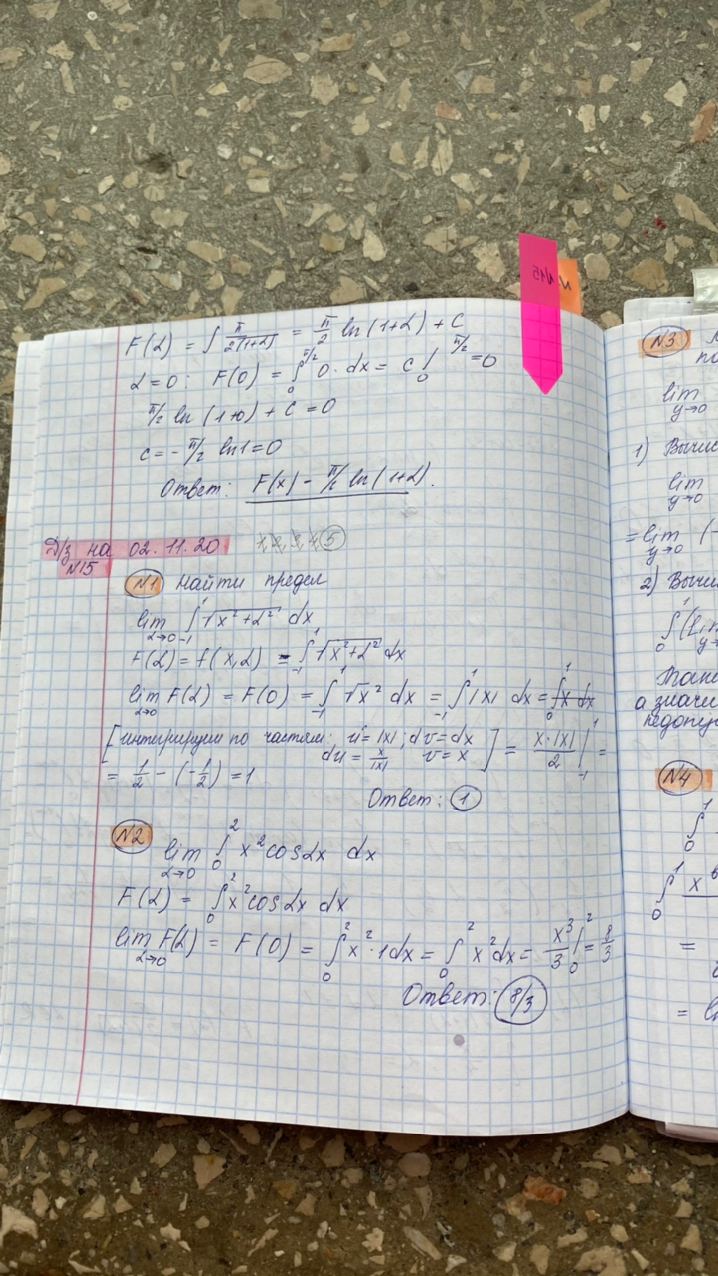 N15
F(α) = ∫ π/2(1+α) = π/2 ln(1+α) + C
α=0: F(0) = ∫₀^π/2 0·dx = C |₀^π/2 = 0
π/2 ln(1+0) + C = 0
c = - π/2 ln1 = 0
Ответ: F(x) - π/2 ln(1+α).
Д/з на 02.11.20 1 2 3 4 5
N15
N1 Найти предел
lim α→0 ∫₋₁¹ √x²+α² dx
F(α) = f(x,α) = ∫₋₁¹ √x²+α² dx
lim α→0 F(α) = F(0) = ∫₋₁¹ √x² dx = ∫₋₁¹ |x| dx = ∫₀¹ x dx
[интегрируем по частям: u=|x|; dv=dx
du = x/|x| v=x ] = x·|x|/2 |₋₁¹ =
= 1/2 - (-1/2) = 1
Ответ: 1
N2 lim α→0 ∫₀² x² cosαx dx
F(α) = ∫₀² x² cosαx dx
lim α→0 F(α) = F(0) = ∫₀² x²·1dx = ∫₀² x²dx = x³/3 |₀² = 8/3
Ответ: 8/3
N3
lim y→0
1)
lim y→0
= lim y→0 (-
2)
∫₀¹ (lim y→
а знач
недопу
N4
∫₀¹
∫₀¹ x
=
=